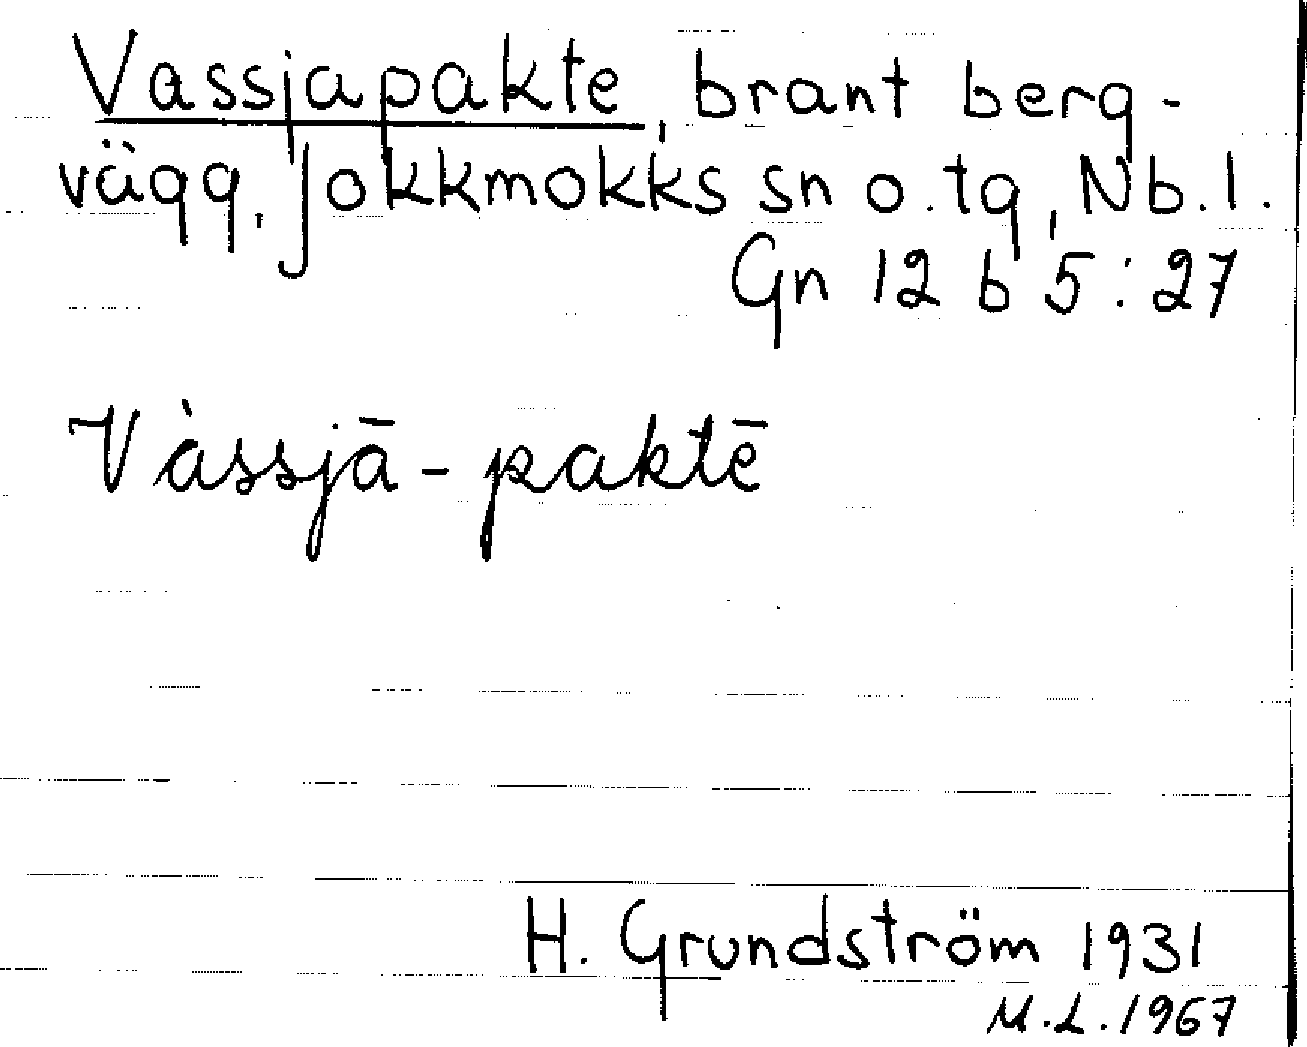 Vassjapakte, brant berg-
vägg, Jokkmokks sn o. tg, Nb. l.
Gn 12 b 5:27
Vàssjā-paktē
H. Grundström 1931
M.L. 1967